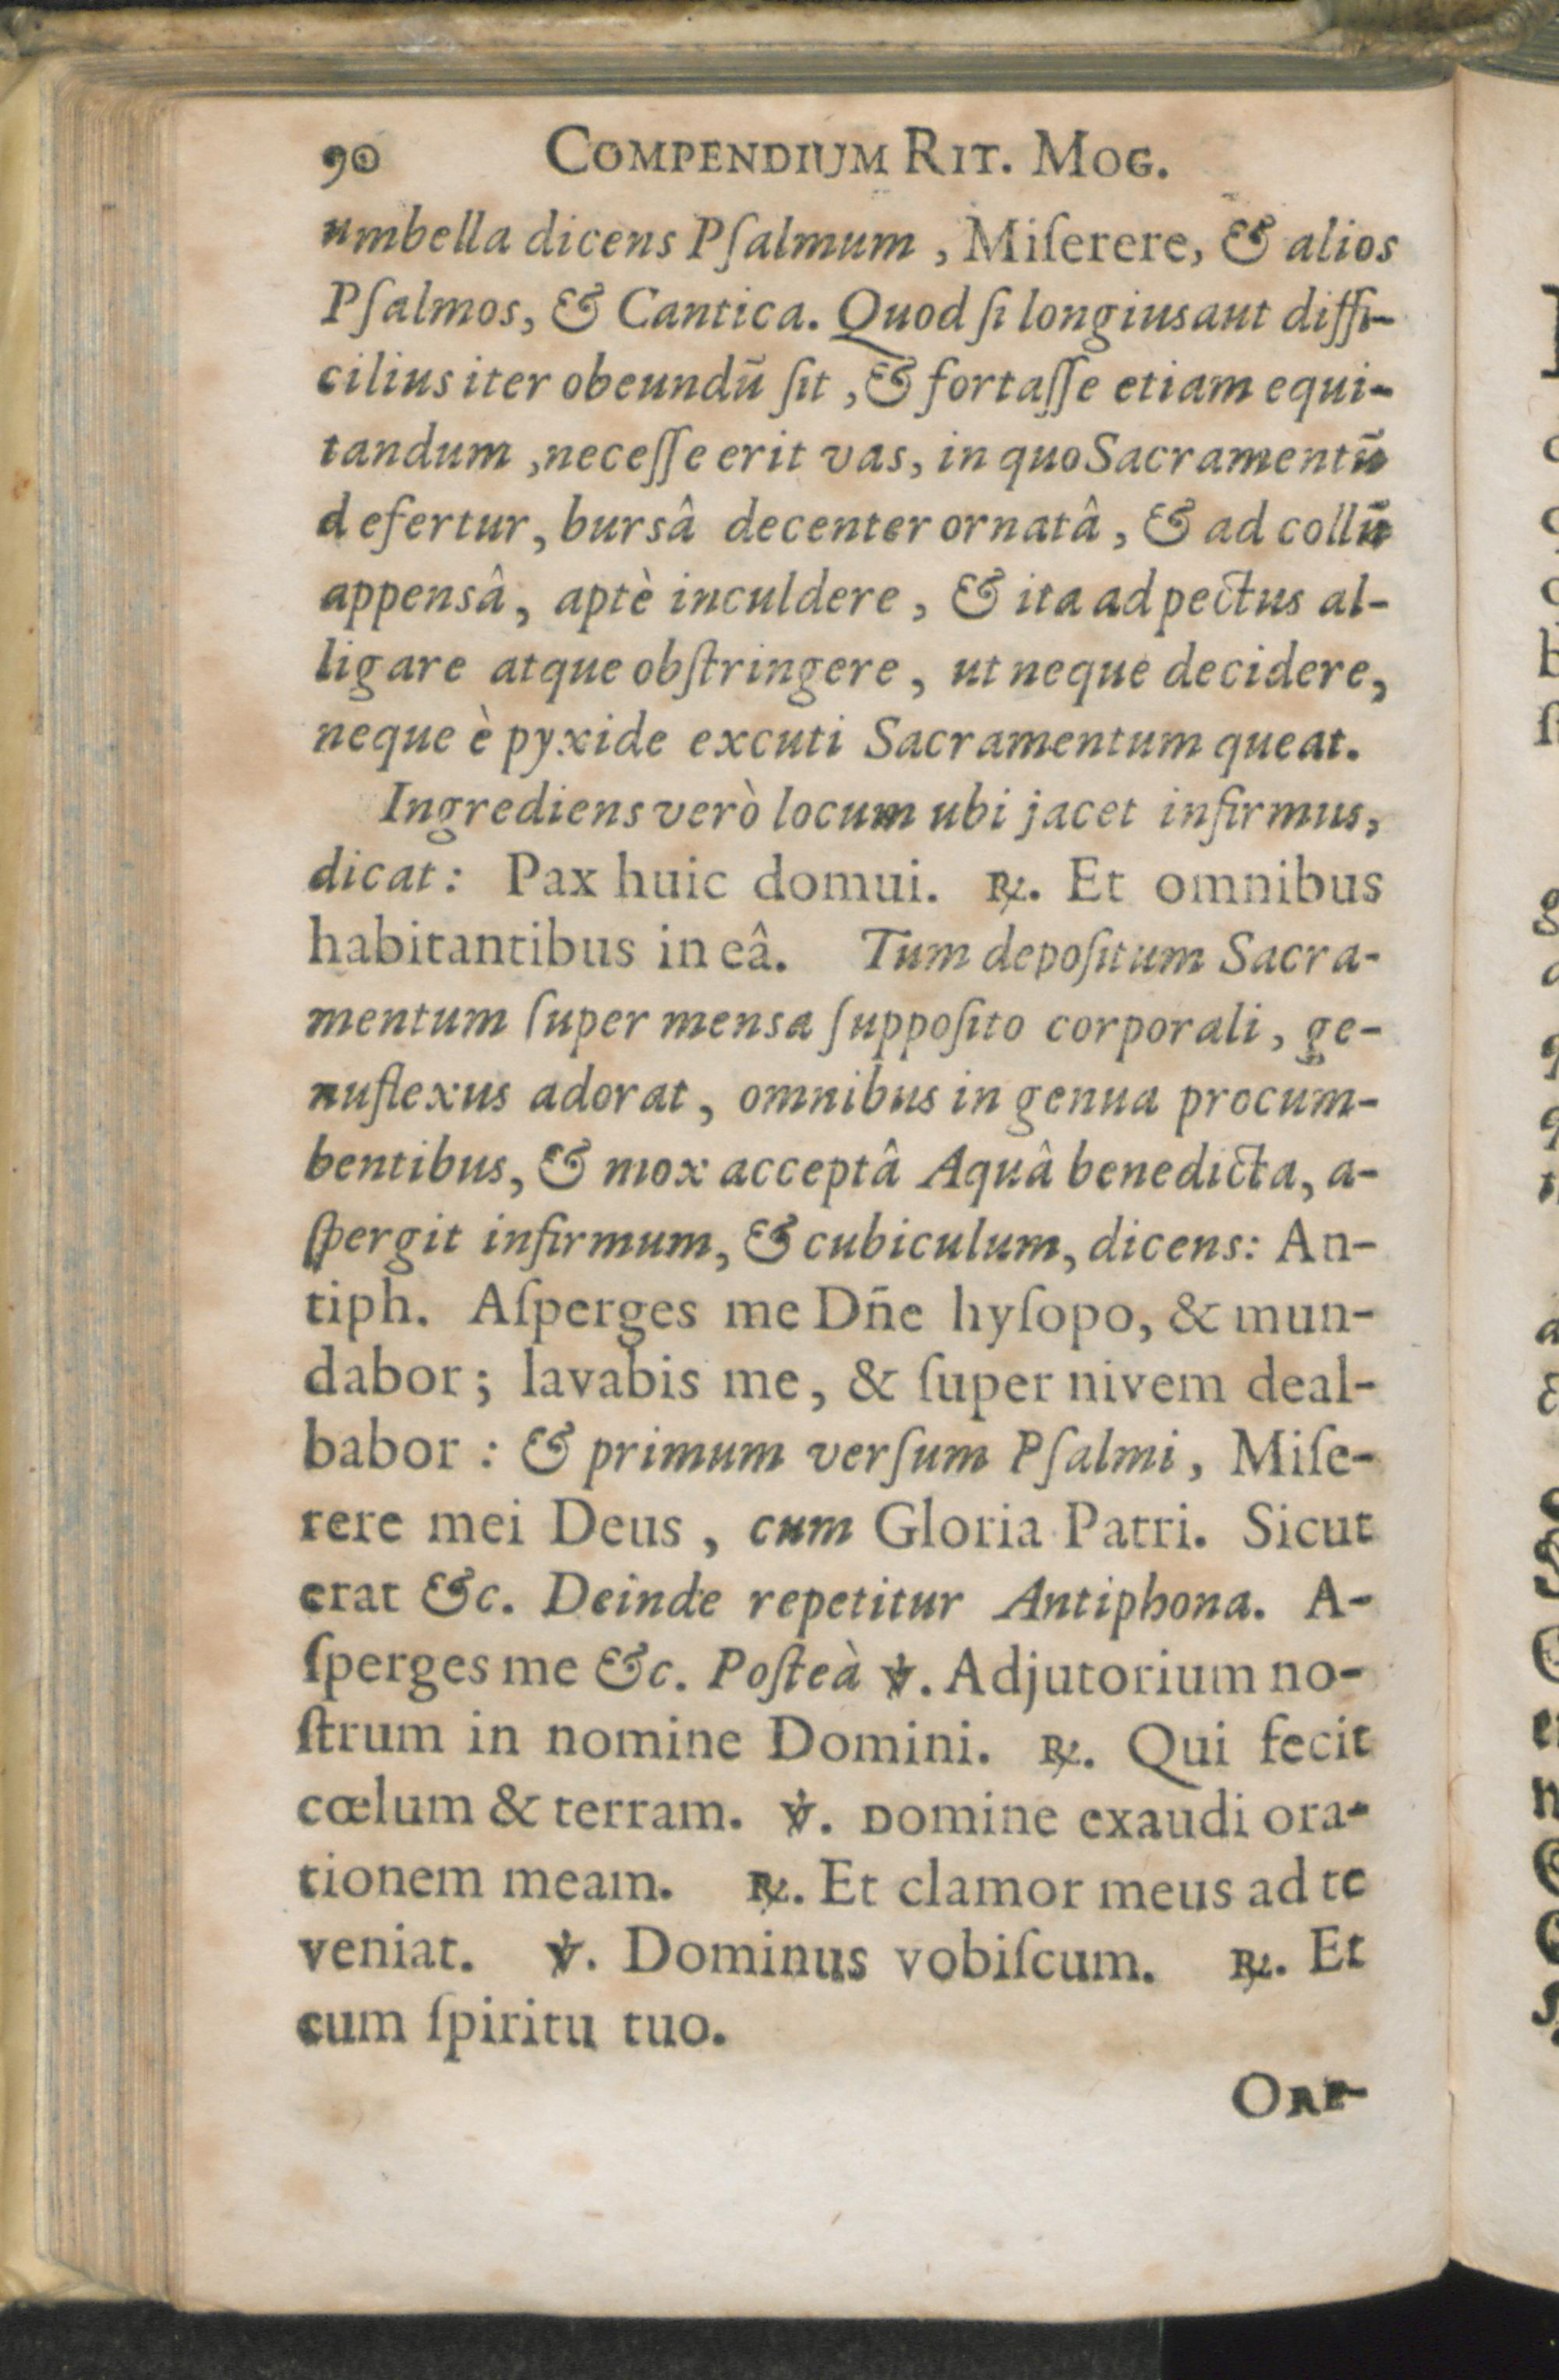 90 COMPENDIUM RIT. MOG.
umbella dicens Pſalmum, Miſerere, & alios
Pſalmos, & Cantica. Quod ſi longius aut diffi-
cilius iter obeundū ſit, & fortaſſe etiam equi-
tandum, neceſſe erit vas, in quo Sacramentū
defertur, bursâ decenter ornatâ, & ad collū
appensâ, aptè inculdere, & ita ad pectus al-
ligare atque obſtringere, ut neque decidere,
neque è pyxide excuti Sacramentum queat.
Ingrediens verò locum ubi jacet infirmus,
dicat: Pax huic domui. ℞. Et omnibus
habitantibus in eâ. Tum depoſitum Sacra-
mentum ſuper mensa ſuppoſito corporali, ge-
nuflexus adorat, omnibus in genua procum-
bentibus, & mox acceptâ Aquâ benedicta, a-
ſpergit infirmum, & cubiculum, dicens: An-
tiph. Aſperges me Dñe hyſopo, & mun-
dabor; lavabis me, & ſuper nivem deal-
babor: & primum verſum Pſalmi, Miſe-
rere mei Deus, cum Gloria Patri. Sicut
erat &c. Deinde repetitur Antiphona. A-
ſperges me &c. Poſteà ℣. Adjutorium no-
ſtrum in nomine Domini. ℞. Qui fecit
cœlum & terram. ℣. Domine exaudi ora-
tionem meam. ℞. Et clamor meus ad te
veniat. ℣. Dominus vobiſcum. ℞. Et
cum ſpiritu tuo.
ORE-